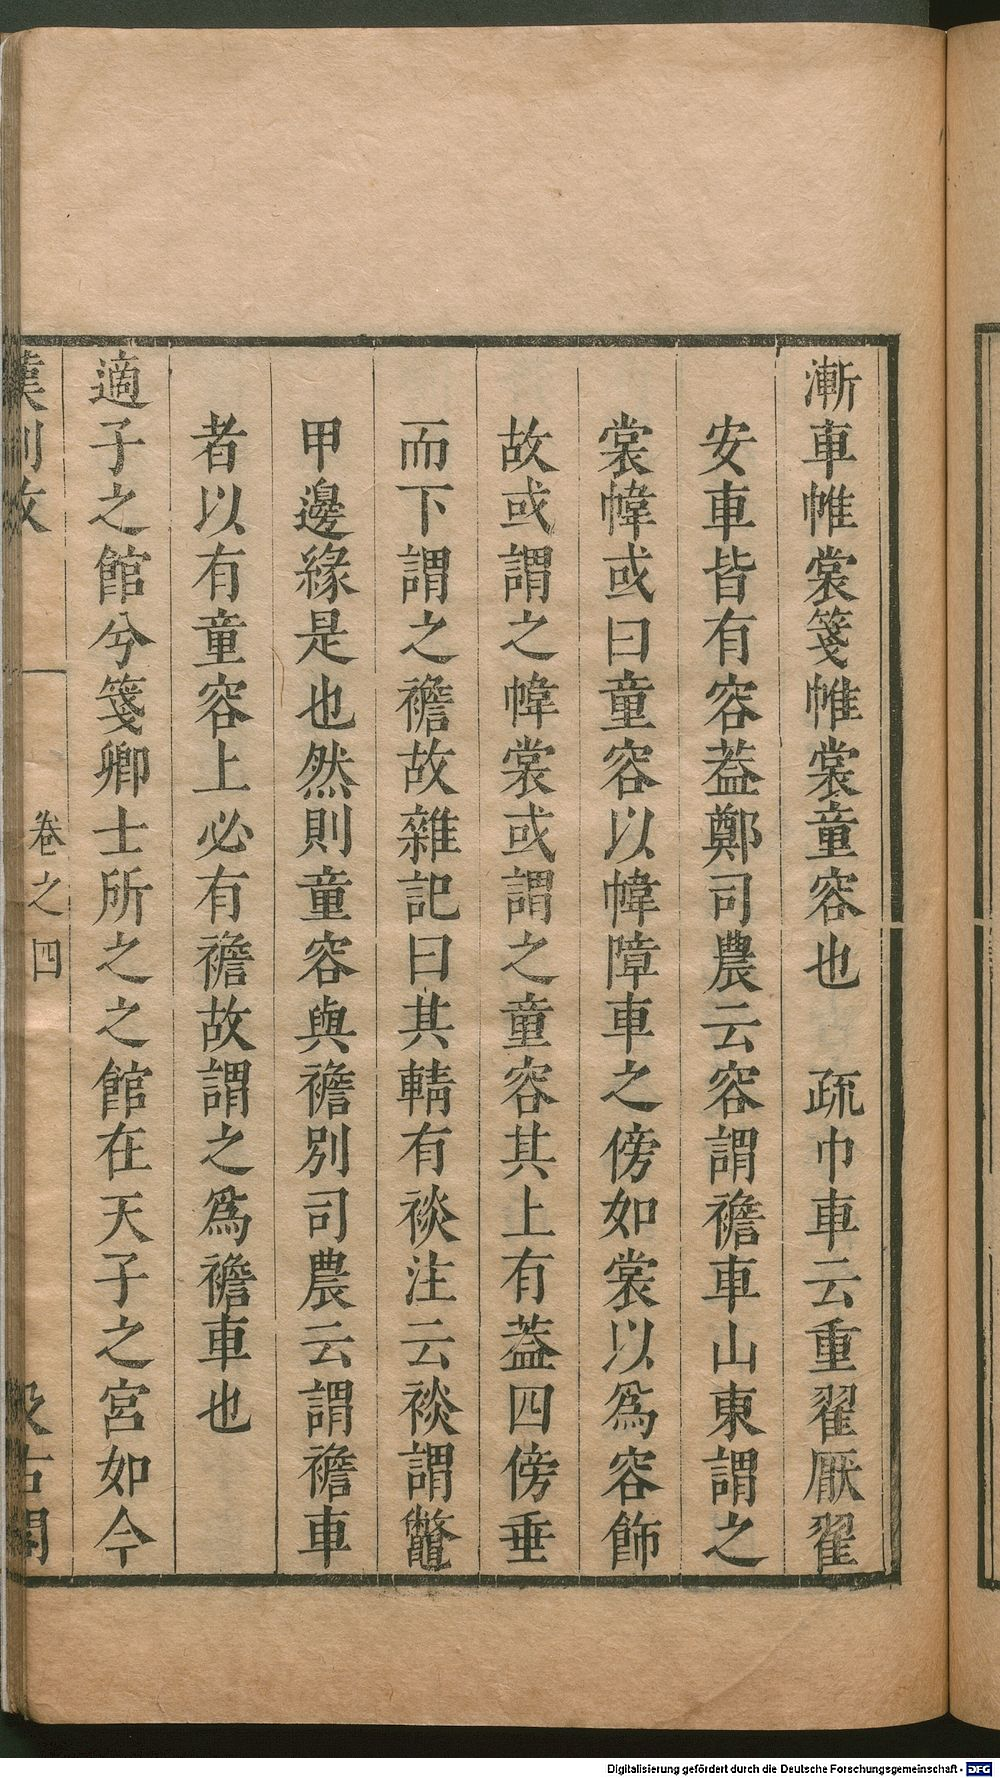 漸車帷裳箋帷裳童容也　疏巾車云重翟厭翟
安車皆有容葢鄭司農云容謂襜車山東謂之
裳幃或曰童容以幃障車之傍如裳以爲容飾
故或謂之幃裳或謂之童容其上有葢四傍垂
而下謂之襜故雜記曰其輤有裧注云裧謂鼈
甲邊緣是也然則童容與襜別司農云謂襜車
者以有童容上必有襜故謂之爲襜車也
適子之館兮箋卿士所之之館在天子之宮如今
卷之四
Digitalisierung gefördert durch die Deutsche Forschungsgemeinschaft - DFG